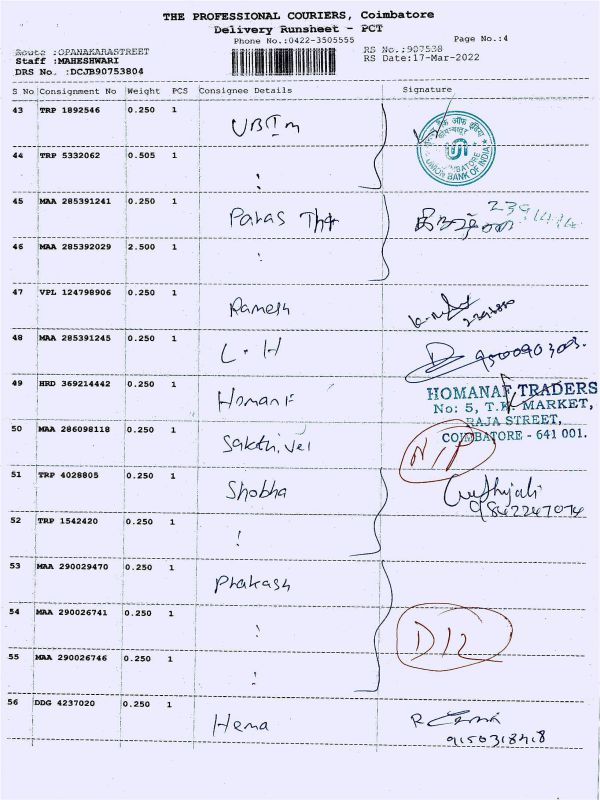 THE PROFESSIONAL COURIERS, Coimbatore
Delivery Runsheet - PCT
Phone No.:0422-3505555
Page No.:4
Route :OPANAKARASTREET
RS No.:907538
Staff :MAHESHWARI
RS Date:17-Mar-2022
DRS No. :DCJB90753804
S No Consignment No Weight PCS Consignee Details Signature
43 TRP 1892546 0.250 1 UBIm
यूनियन बैंक ऑफ इंडिया
UNION BANK OF INDIA
44 TRP 5332062 0.505 1
45 MAA 285391241 0.250 1 Paras
46 MAA 285392029 2.500 1
47 VPL 124798906 0.250 1 Ramesh
48 MAA 285391245 0.250 1 L.H
49 HRD 369214442 0.250 1
HOMANAF TRADERS
No: 5, T.K. MARKET,
RAJA STREET,
COIMBATORE - 641 001.
50 MAA 286098118 0.250 1 Sakthivel
51 TRP 4028805 0.250 1 Shobha
9842247074
52 TRP 1542420 0.250 1
53 MAA 290029470 0.250 1 Prakash
54 MAA 290026741 0.250 1
55 MAA 290026746 0.250 1
56 DDG 4237020 0.250 1 Hema
9150318418